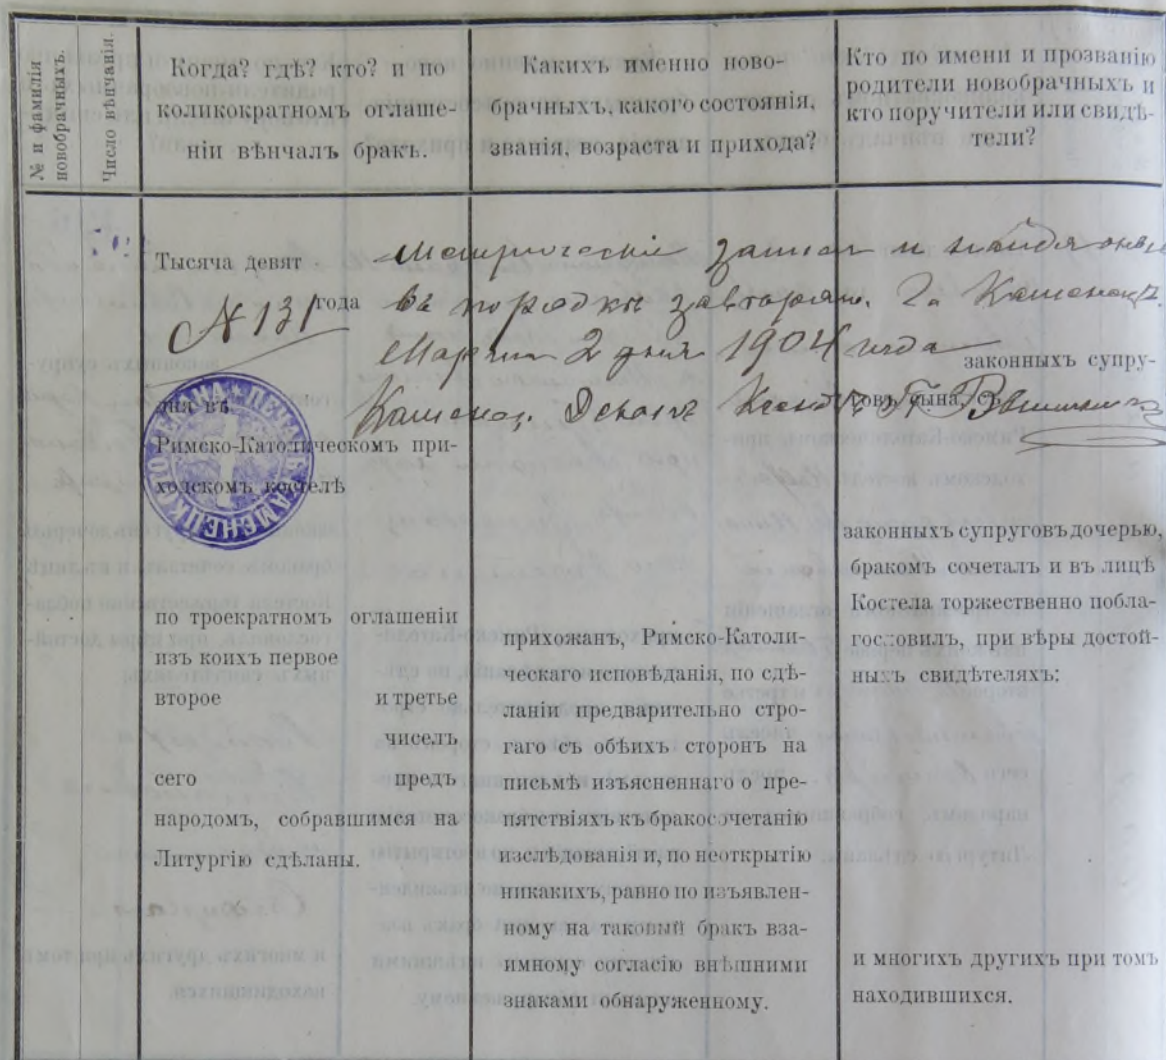 № и фамилія новобрачныхъ.
Число вѣнчанія.
Когда? гдѣ? кто? и по
коликократном оглаше-
ніи вѣнчалъ бракъ.
Какихъ именно ново-
брачныхъ, какого состоянія,
званія, возраста и прихода?
Кто по имени и прозванію
родители новобрачныхъ и
кто поручители или свидѣ-
тели?
Тысяча девят
года
№ 131
дня въ
Римско-Католическомъ при-
ходскомъ костелѣ
по троекратном оглашеніи
изъ коихъ первое
второе и третье
чиселъ
сего предъ
народомъ, собравшимся на
Литургію сдѣланы.
въ порядкѣ
Марта 2 дня 1904 года
Каменец. Деканъ
прихожанъ, Римско-Католи-
ческаго исповѣданія, по сдѣ-
ланіи предварительно стро-
гаго съ обѣихъ сторонъ на
письмѣ изъясненнаго о пре-
пятствіяхъ къ бракосочетанію
изслѣдованія и, по неоткрытію
никакихъ, равно по изъявлен-
ному на таковый бракъ вза-
имному согласію внѣшними
знаками обнаруженному.
законныхъ супру-
говъ сына, съ
законныхъ супруговъ дочерью,
бракомъ сочеталъ и въ лицѣ
Костела торжественно побла-
гословилъ, при вѣры достой-
ныхъ свидѣтеляхъ:
и многихъ другихъ при томъ
находившихся.